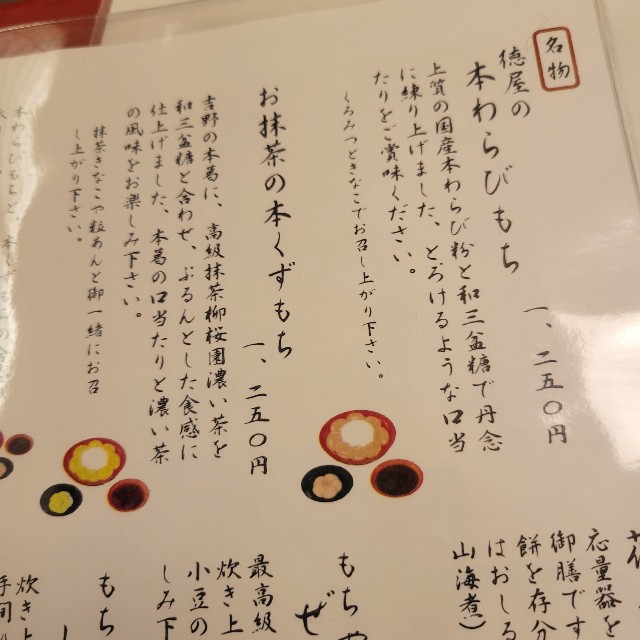 名物
徳屋の
本わらびもち
一、二五〇円
上質の国産本わらび粉と和三盆糖で丹念
に練り上げました、とろけるような口当
たりをご賞味ください。
くろみつときなこでお召し上がり下さい。
お抹茶の本くずもち
一、二五〇円
吉野の本葛に、高級抹茶柳桜園濃い茶を
和三盆糖と合わせ、ぷるんとした食感に
仕上げました、本葛の口当たりと濃い茶
の風味をお楽しみ下さい。
抹茶きなこや粒あんと御一緒にお召
し上がり下さい。
本わらびもちと、本く
応量器を
御膳です
餅を存分
はおしる
山海煮)
もちや
ぜ
最高級
炊き上
小豆の
しみ下
もち
炊き上
手間